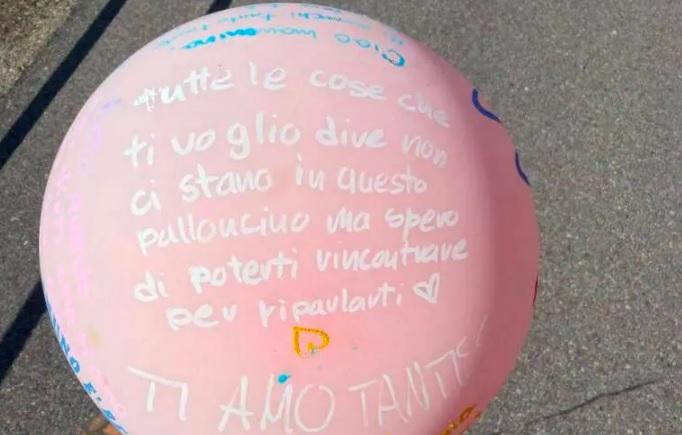 Ciao mammina
tutte le cose che
ti voglio dire non
ci stano in questo
palloncino ma spero
di poterti rincontrare
per riparlarti ♡
TI AMO TANTISS